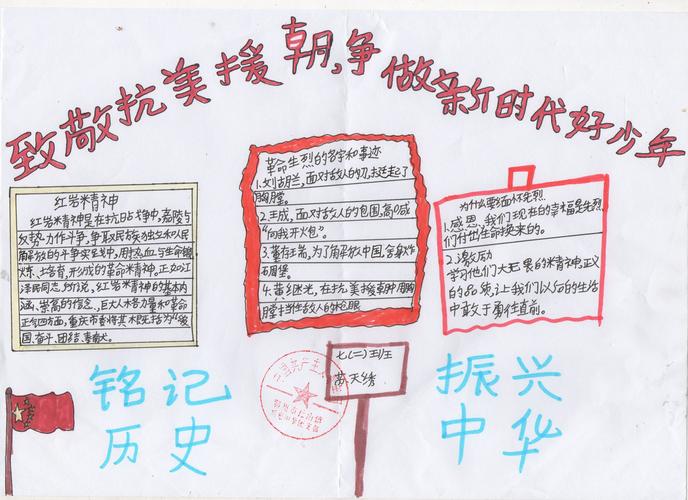 致敬抗美援朝,争做新时代好少年
红岩精神
红岩精神是在抗日战争中,
反动势力作斗争,争取民族独立和人民
解放的斗争实践中,用热血与生命锻
炼、培育,形成的革命精神,正如江
泽民同志所说,红岩精神的基本内
涵、崇高的信念、巨大人格力量和革命
正气四方面,重庆市委将其概括为“爱
国、奋斗、团结、奉献。
革命先烈的名字和事迹
1.刘胡兰,面对敌人的刀,挺起了
胸膛。
2.王成,面对敌人的包围,高喊
“向我开火包”。
3.董存瑞,为了解放中国,舍身炸
石周堡。
4.黄继光,在抗美援朝中用胸
膛挡住敌人的枪眼
为什么要缅怀先烈
1.感恩、我们现在的幸福是先烈
们付出生命换来的。
2.激励
学习他们大无畏的精神,正义
的品质,让我们以后的生活
中敢于勇往直前。
七(二)班
铭记
历史
振兴
中华